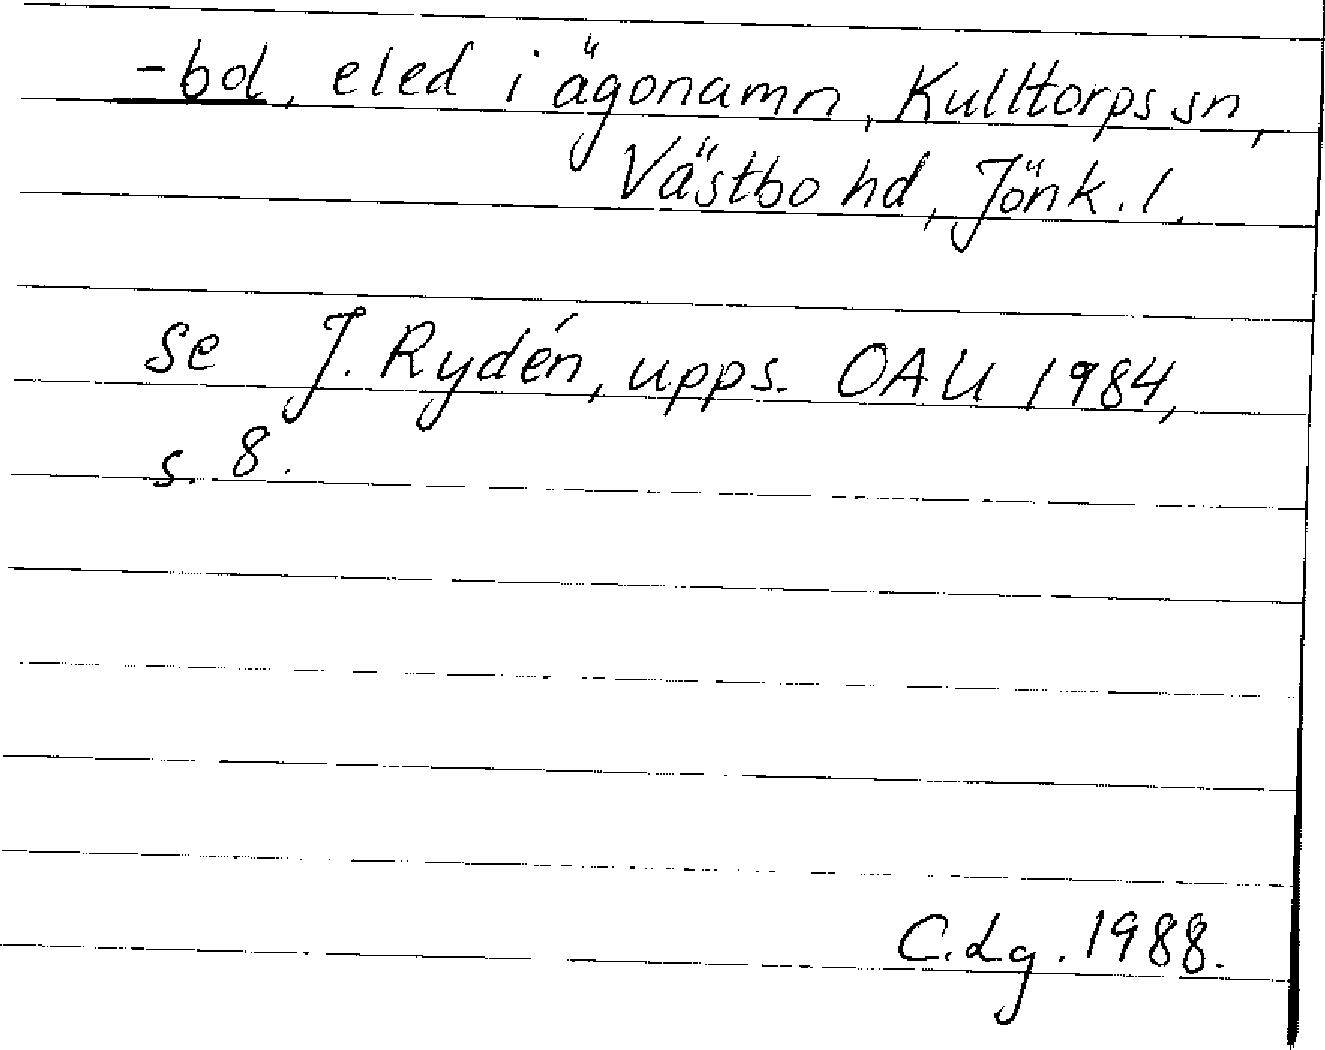 -bol, eled i ägonamn, Kulltorps sn,
Västbo hd, Jönk. l.
se J. Rydén, upps. OAU 1984,
s. 8.
C.Lg. 1988.